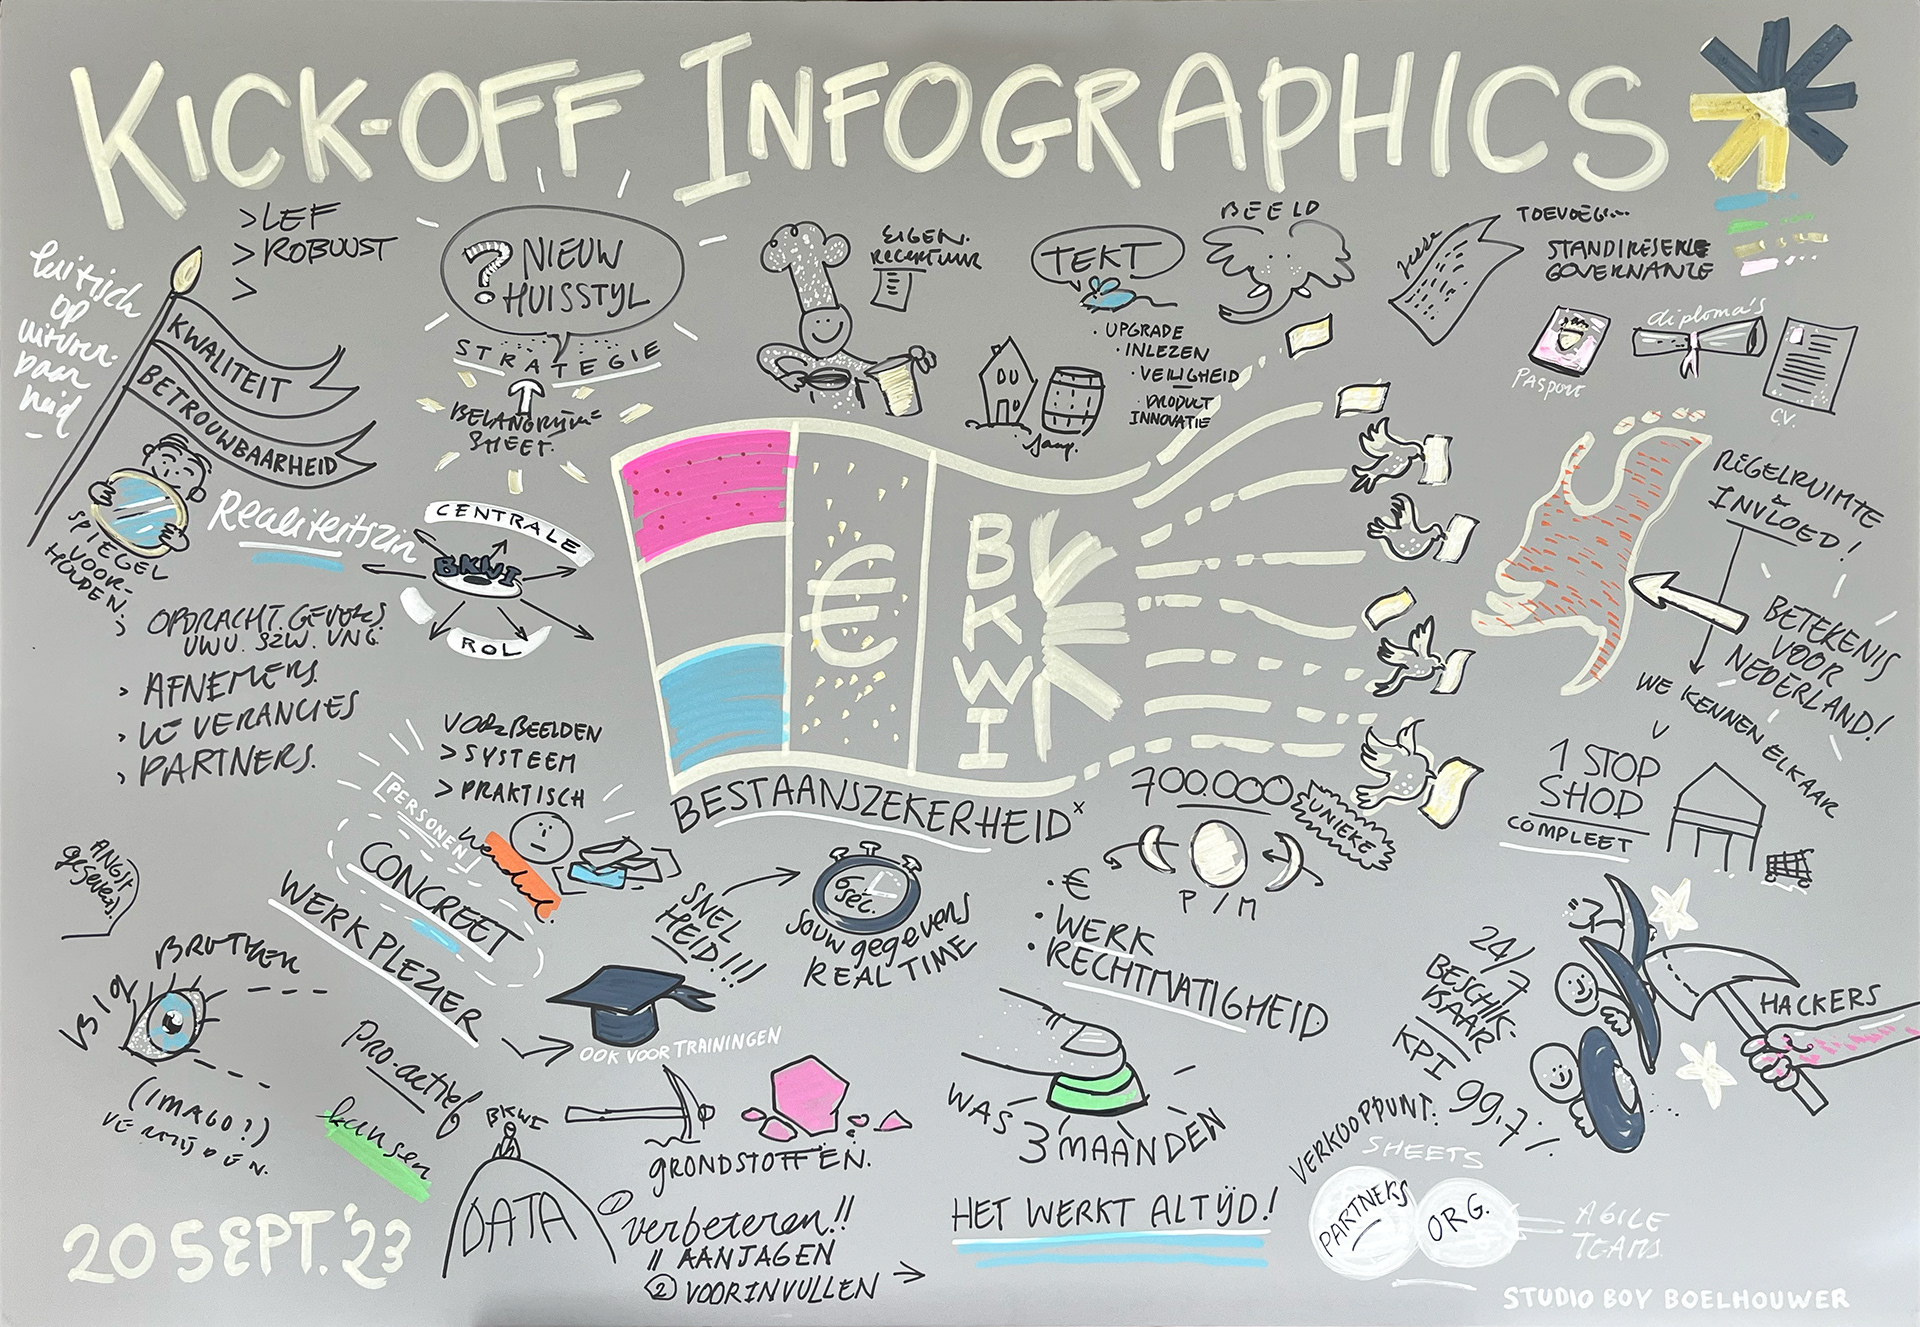 KICK-OFF INFOGRAPHICS
> LEF
> ROBUUST
>
kritisch
op
uitvoer-
baar
heid
KWALITEIT
BETROUWBAARHEID
SPIEGEL
VOOR-
HOUDEN.
Realiteitszin
? NIEUW
HUISSTYL
STRATEGIE
SHEET.
CENTRALE
BKWI
ROL
OPDRACHT.GEVERS
UWV. SZW. VNG
> AFNEMERS
> LEVERANCIES
> PARTNERS.
EIGEN.
RECEPTUUR
TEKT
BEELD
· UPGRADE
· INLEZEN
· VEILIGHEID
· PRODUCT
INNOVATIE
Jaap.
TOEVOEG...
GOVERNANTE
PASPORT
diploma's
C.V.
€
BKWI
BESTAANSZEKERHEID
REGELRUIMTE
&
INVLOED!
BETEKENIS
VOOR
NEDERLAND!
WE KENNEN ELKAAR
1 STOP
SHOD
COMPLEET
700.000
UNIEKE
P/M
· €
· WERK
· RECHTMATIGHEID
VOORBEELDEN
> SYSTEEM
> PRAKTISCH
[PERSONEN]
CONCREET
WERKPLEZIER
SNEL
HEID!!!
6 sec.
JOUW gegevens
REAL TIME
ANGST
gegevens
BROTHER
BIG
(IMAGO?)
VERMIJDEN.
PRO-actief
kansen
OOK VOOR TRAININGEN
GRONDSTOFFEN.
BKWI
DATA
1 verbeteren!!
" AANJAGEN
2 VOORINVULLEN →
WAS
3 MAANDEN
HET WERKT ALTYD!
24/7
BESCHIK-
BAAR
KPI 99.7%
HACKERS
VERKOOPPUNT:
SHEETS
PARTNERS
ORG.
AGILE
TEAMS
20 SEPT. '23
STUDIO BOY BOELHOUWER